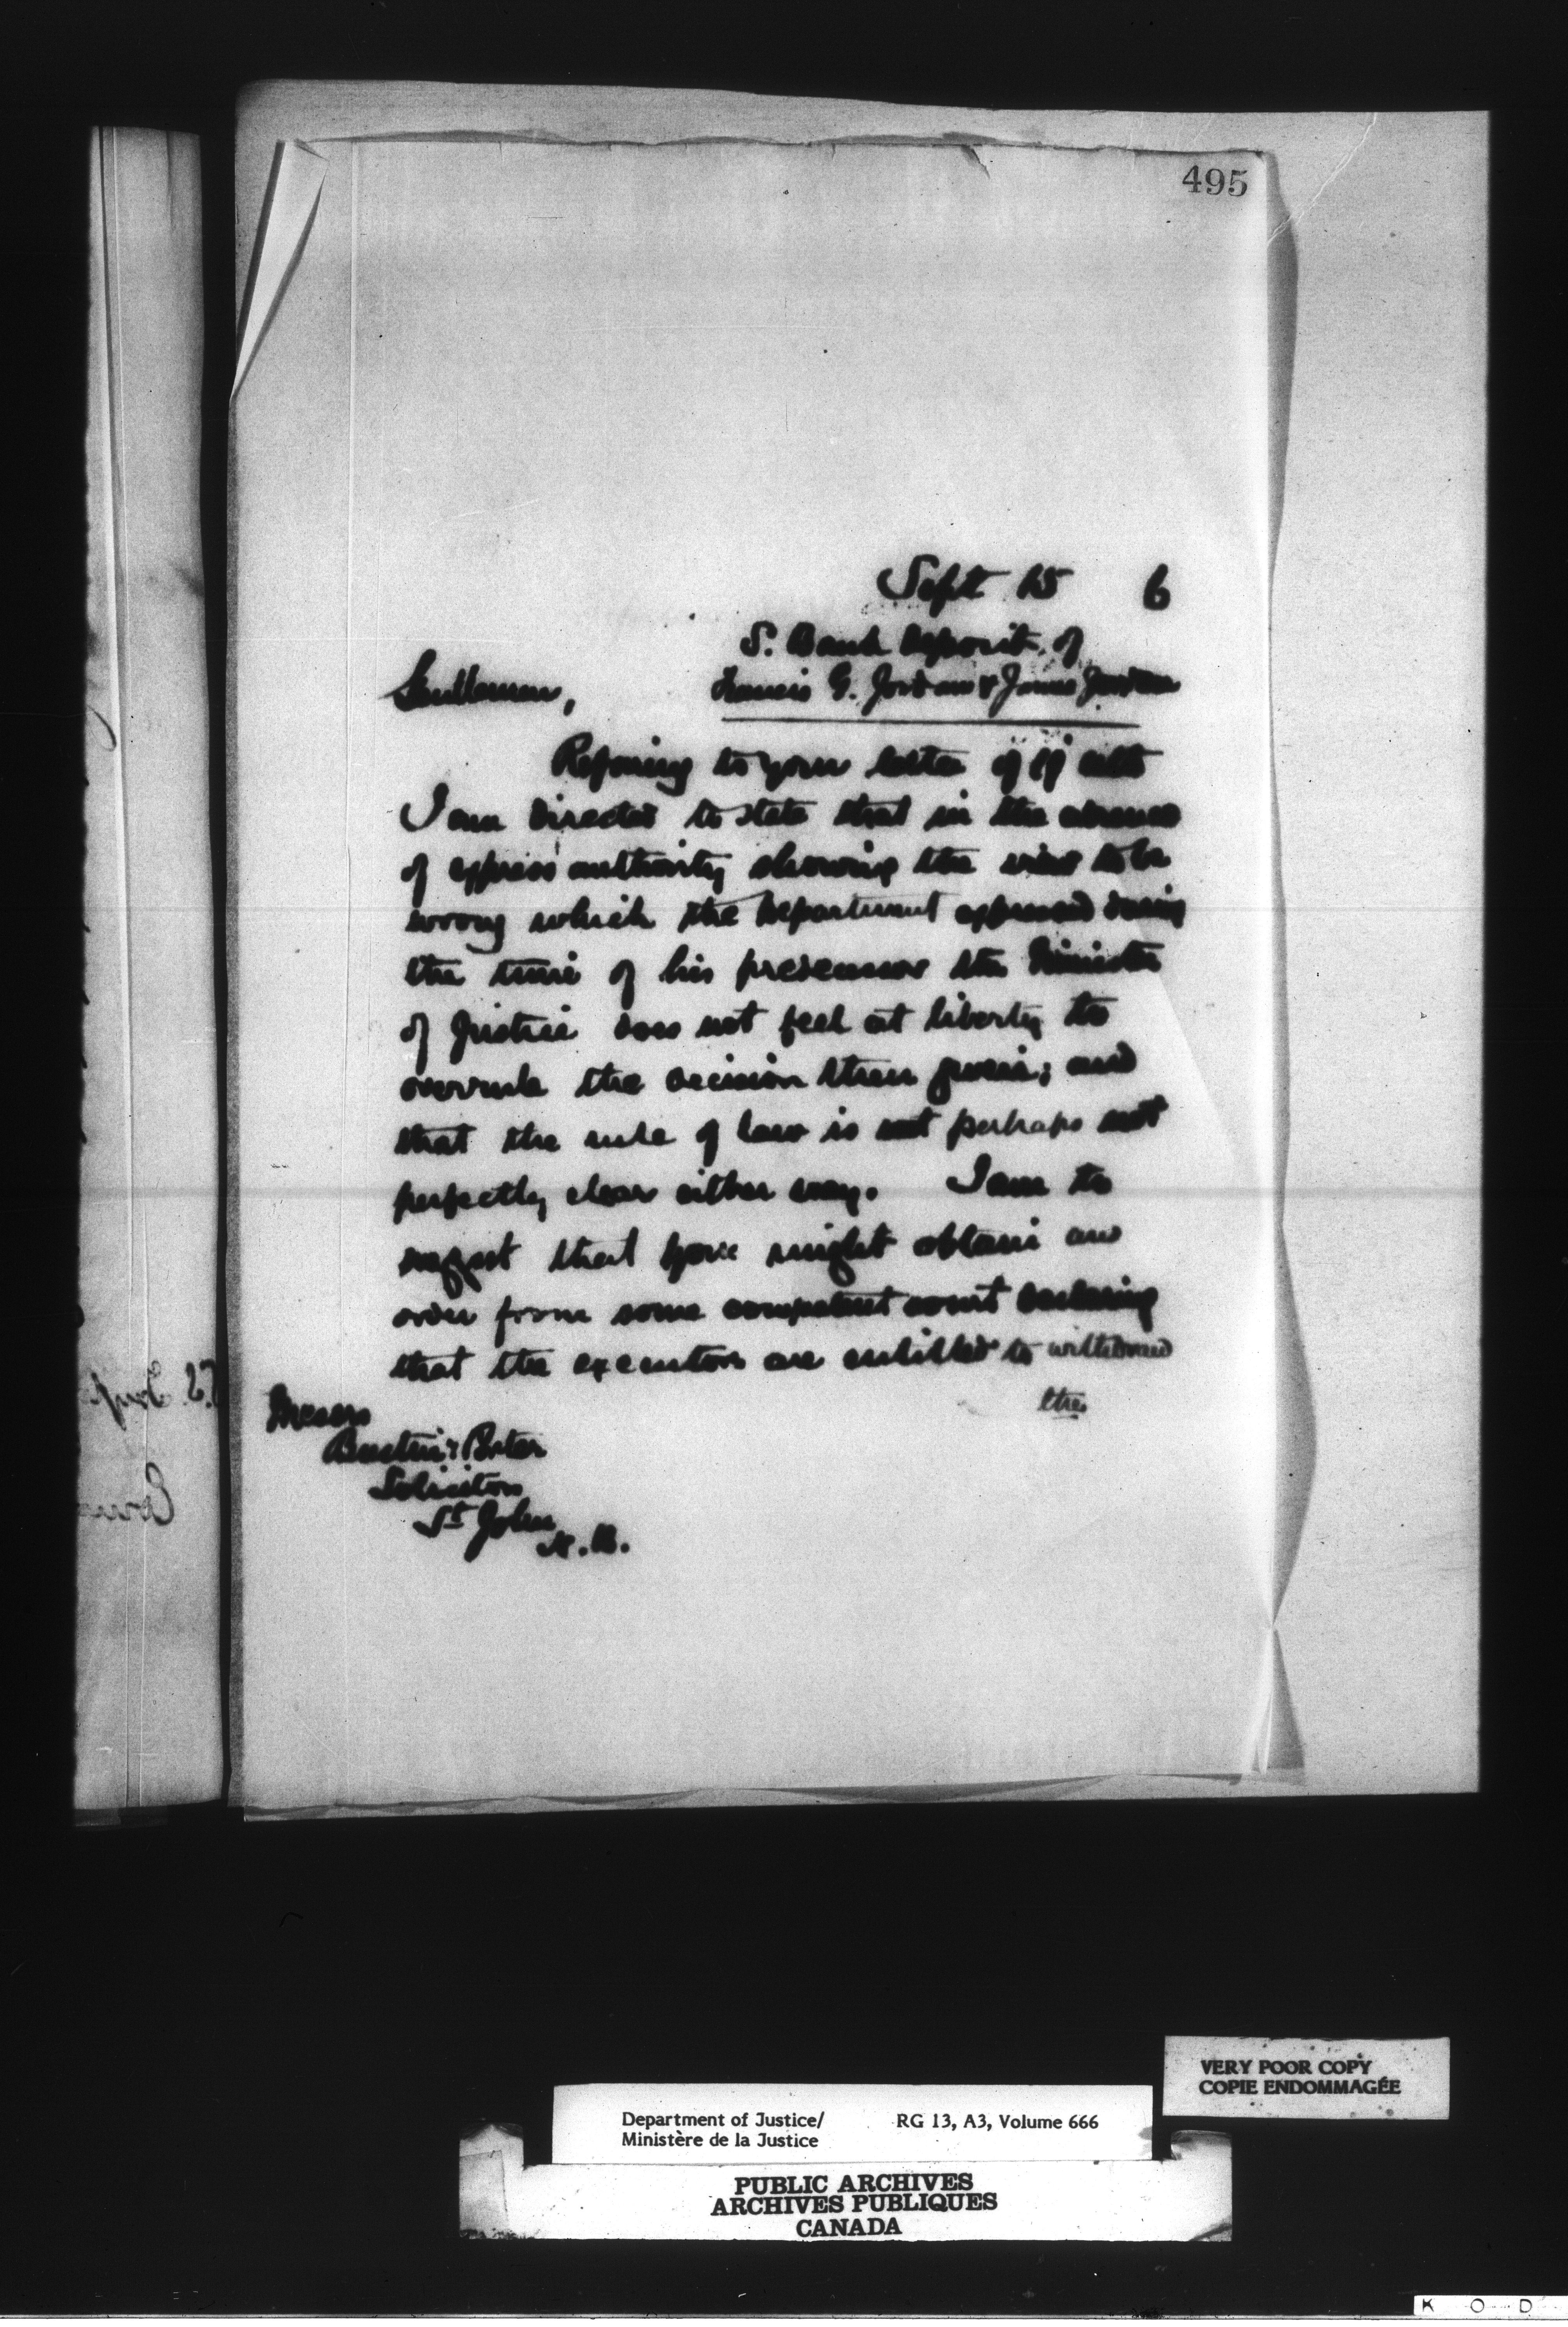 495
Sept 15 6
S. Bank Deposit of
Gentlemen, Francis G. Jordan & James Jordan
Refering to your letter of ult
I am directed to state that in the absence
of express authority showing the view to be
wrong which the Department expressed during
the time of his predecessor the Minister
of Justice does not feel at liberty to
overrule the decision then given; and
that the rule of law is not perhaps not
perfectly clear either way. I am to
suggest that you might obtain an
order from some competent court declaring
that the executors are entitled to withdraw
the
Messrs
& Porter
Solicitors
St John
N.B.
VERY POOR COPY
COPIE ENDOMMAGÉE
Department of Justice/ RG 13, A3, Volume 666
Ministère de la Justice
PUBLIC ARCHIVES
ARCHIVES PUBLIQUES
CANADA
K O D